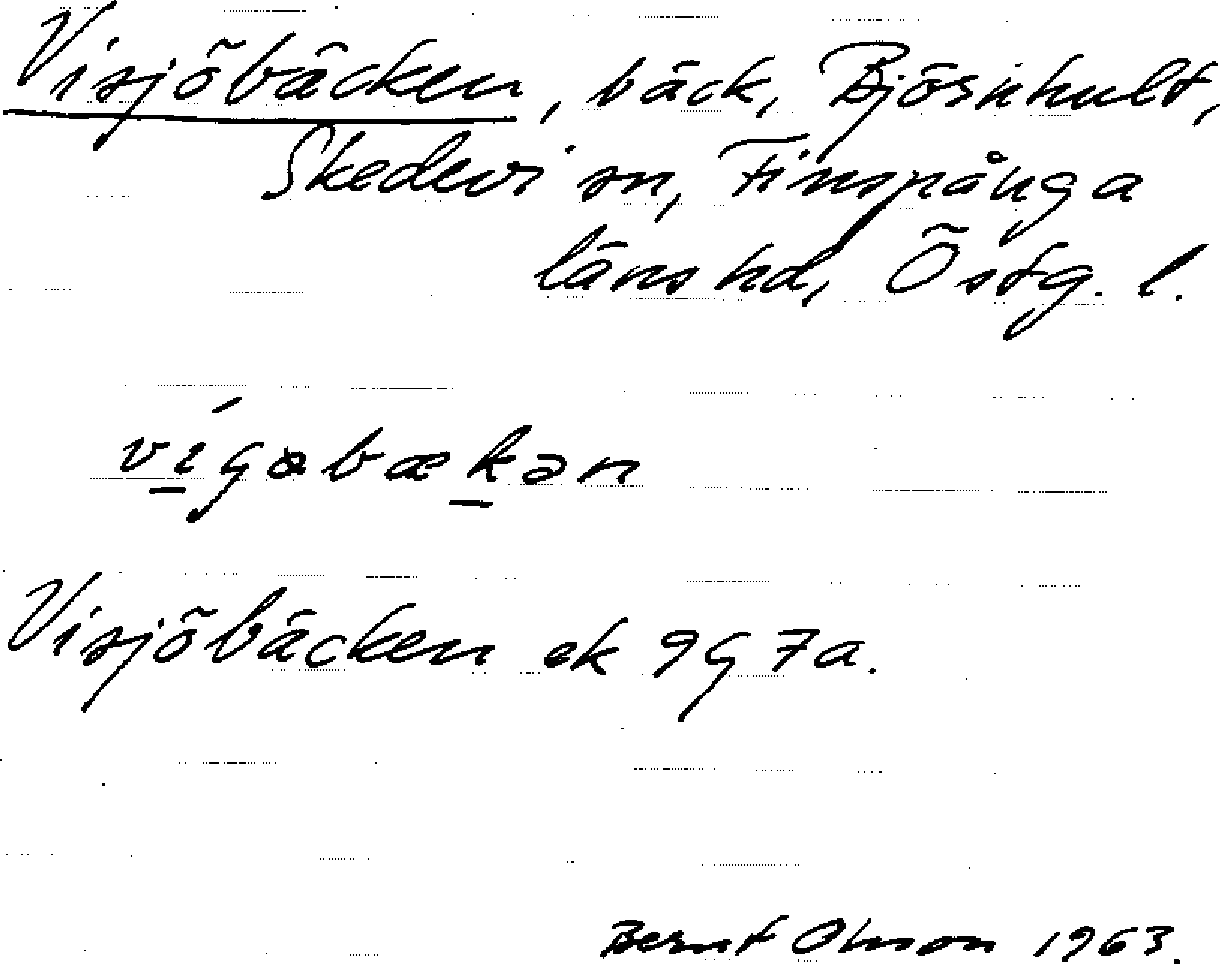 Visjöbäcken, bäck, Björnhult,
Skedevi sn, Finspånga
läns hd, Östg. l.
vígəbækən
Visjöbäcken ek 9G 7a.
Bernt Olsson 1963.